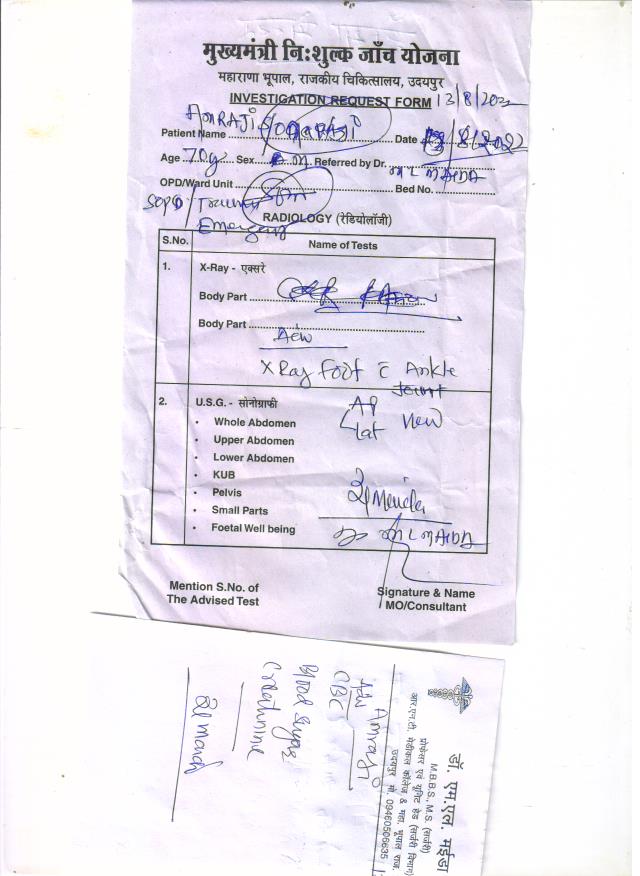 मुख्यमंत्री नि:शुल्क जाँच योजना
महाराणा भूपाल, राजकीय चिकित्सालय, उदयपुर
INVESTIGATION REQUEST FORM 13/8/202
AmRAJi
Patient Name Date 8/2022
Age 70y Sex M Referred by Dr. ML MAIDA
OPD/Ward Unit Bed No.
SOPD/Trauma
Emergency
RADIOLOGY (रेडियोलॉजी)
S.No. Name of Tests
1. X-Ray - एक्सरे
Body Part
Body Part
Adv
X Ray foot c Ankle
Joint
2. U.S.G. - सोनोग्राफी AP
• Whole Abdomen lat View
• Upper Abdomen
• Lower Abdomen
• KUB
• Pelvis
• Small Parts
• Foetal Well being Dr ML MAIDA
Mention S.No. of
The Advised Test
Signature & Name
MO/Consultant
डॉ. एम.एल. मईडा
M.B.B.S., M.S. (सर्जरी)
प्रोफेसर एवं यूनिट हेड (सर्जरी विभाग)
आर.एन.टी. मेडीकल कॉलेज, & महा. भूपाल राज.
उदयपुर मो. 09460506635
Amraji
Adv
CBC
Blood Sugar
Creatinine